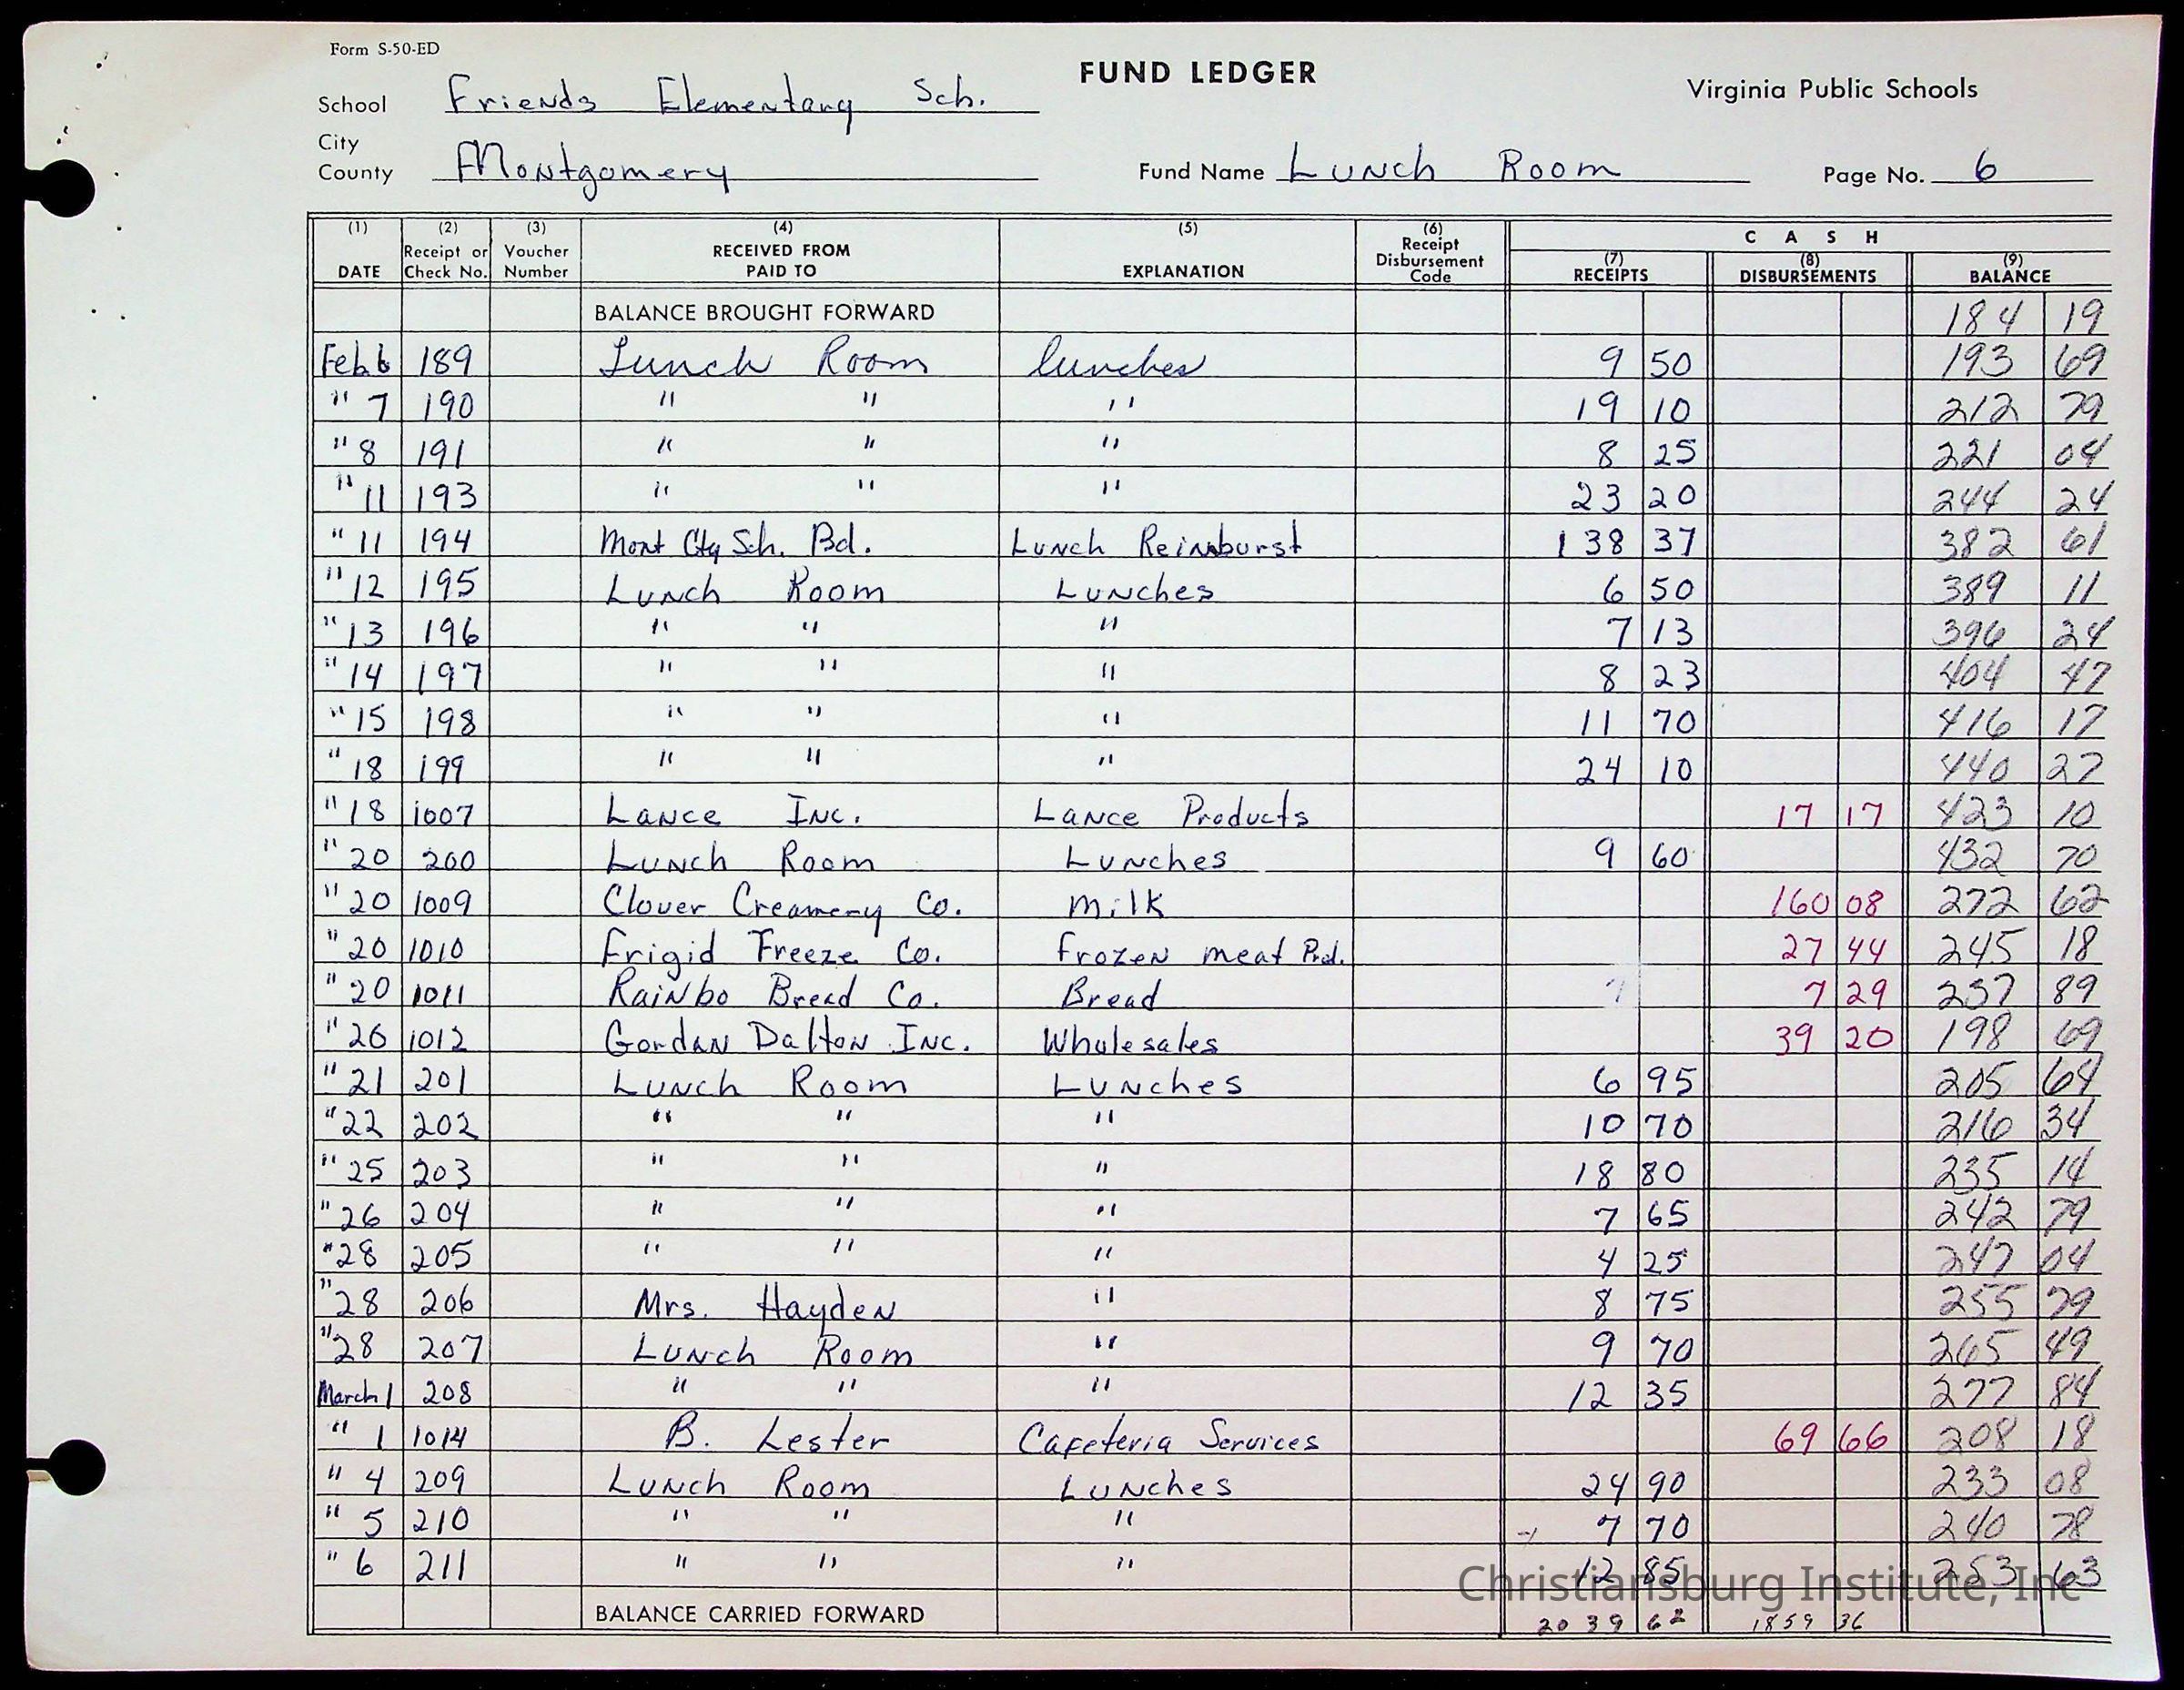 Form S-50-ED
FUND LEDGER
Virginia Public Schools
School Friends Elementary Sch.
City
County Montgomery Fund Name Lunch Room Page No. 6
(1) (2) (3) (4) (5) (6) C A S H
DATE Receipt or Check No. Voucher Number RECEIVED FROM PAID TO EXPLANATION Receipt Disbursement Code (7) RECEIPTS (8) DISBURSEMENTS (9) BALANCE
BALANCE BROUGHT FORWARD 184 19
Feb 6 189 Lunch Room lunches 9 50 193 69
" 7 190 " " " 19 10 212 79
" 8 191 " " " 8 25 221 04
" 11 193 " " " 23 20 244 24
" 11 194 Mont Cty Sch. Bd. Lunch Reimburst 138 37 382 61
" 12 195 Lunch Room Lunches 6 50 389 11
" 13 196 " " " 7 13 396 24
" 14 197 " " " 8 23 404 47
" 15 198 " " " 11 70 416 17
" 18 199 " " " 24 10 440 27
" 18 1007 Lance Inc. Lance Products 17 17 423 10
" 20 200 Lunch Room Lunches 9 60 432 70
" 20 1009 Clover Creamery Co. Milk 160 08 272 62
" 20 1010 Frigid Freeze Co. Frozen meat Prd. 27 44 245 18
" 20 1011 Rainbo Bread Co. Bread 7 29 237 89
" 20 1012 Gordan Dalton Inc. Wholesales 39 20 198 69
" 21 201 Lunch Room Lunches 6 95 205 64
" 22 202 " " " 10 70 216 34
" 25 203 " " " 18 80 235 14
" 26 204 " " " 7 65 242 79
" 28 205 " " " 4 25 247 04
" 28 206 Mrs. Hayden " 8 75 255 79
" 28 207 Lunch Room " 9 70 265 49
March 1 208 " " " 12 35 277 84
" 1 1014 B. Lester Cafeteria Services 69 66 208 18
" 4 209 Lunch Room Lunches 24 90 233 08
" 5 210 " " " 7 70 240 78
" 6 211 " " " 12 85 253 63
Christiansburg Institute, Inc
BALANCE CARRIED FORWARD 2039 62 1859 36